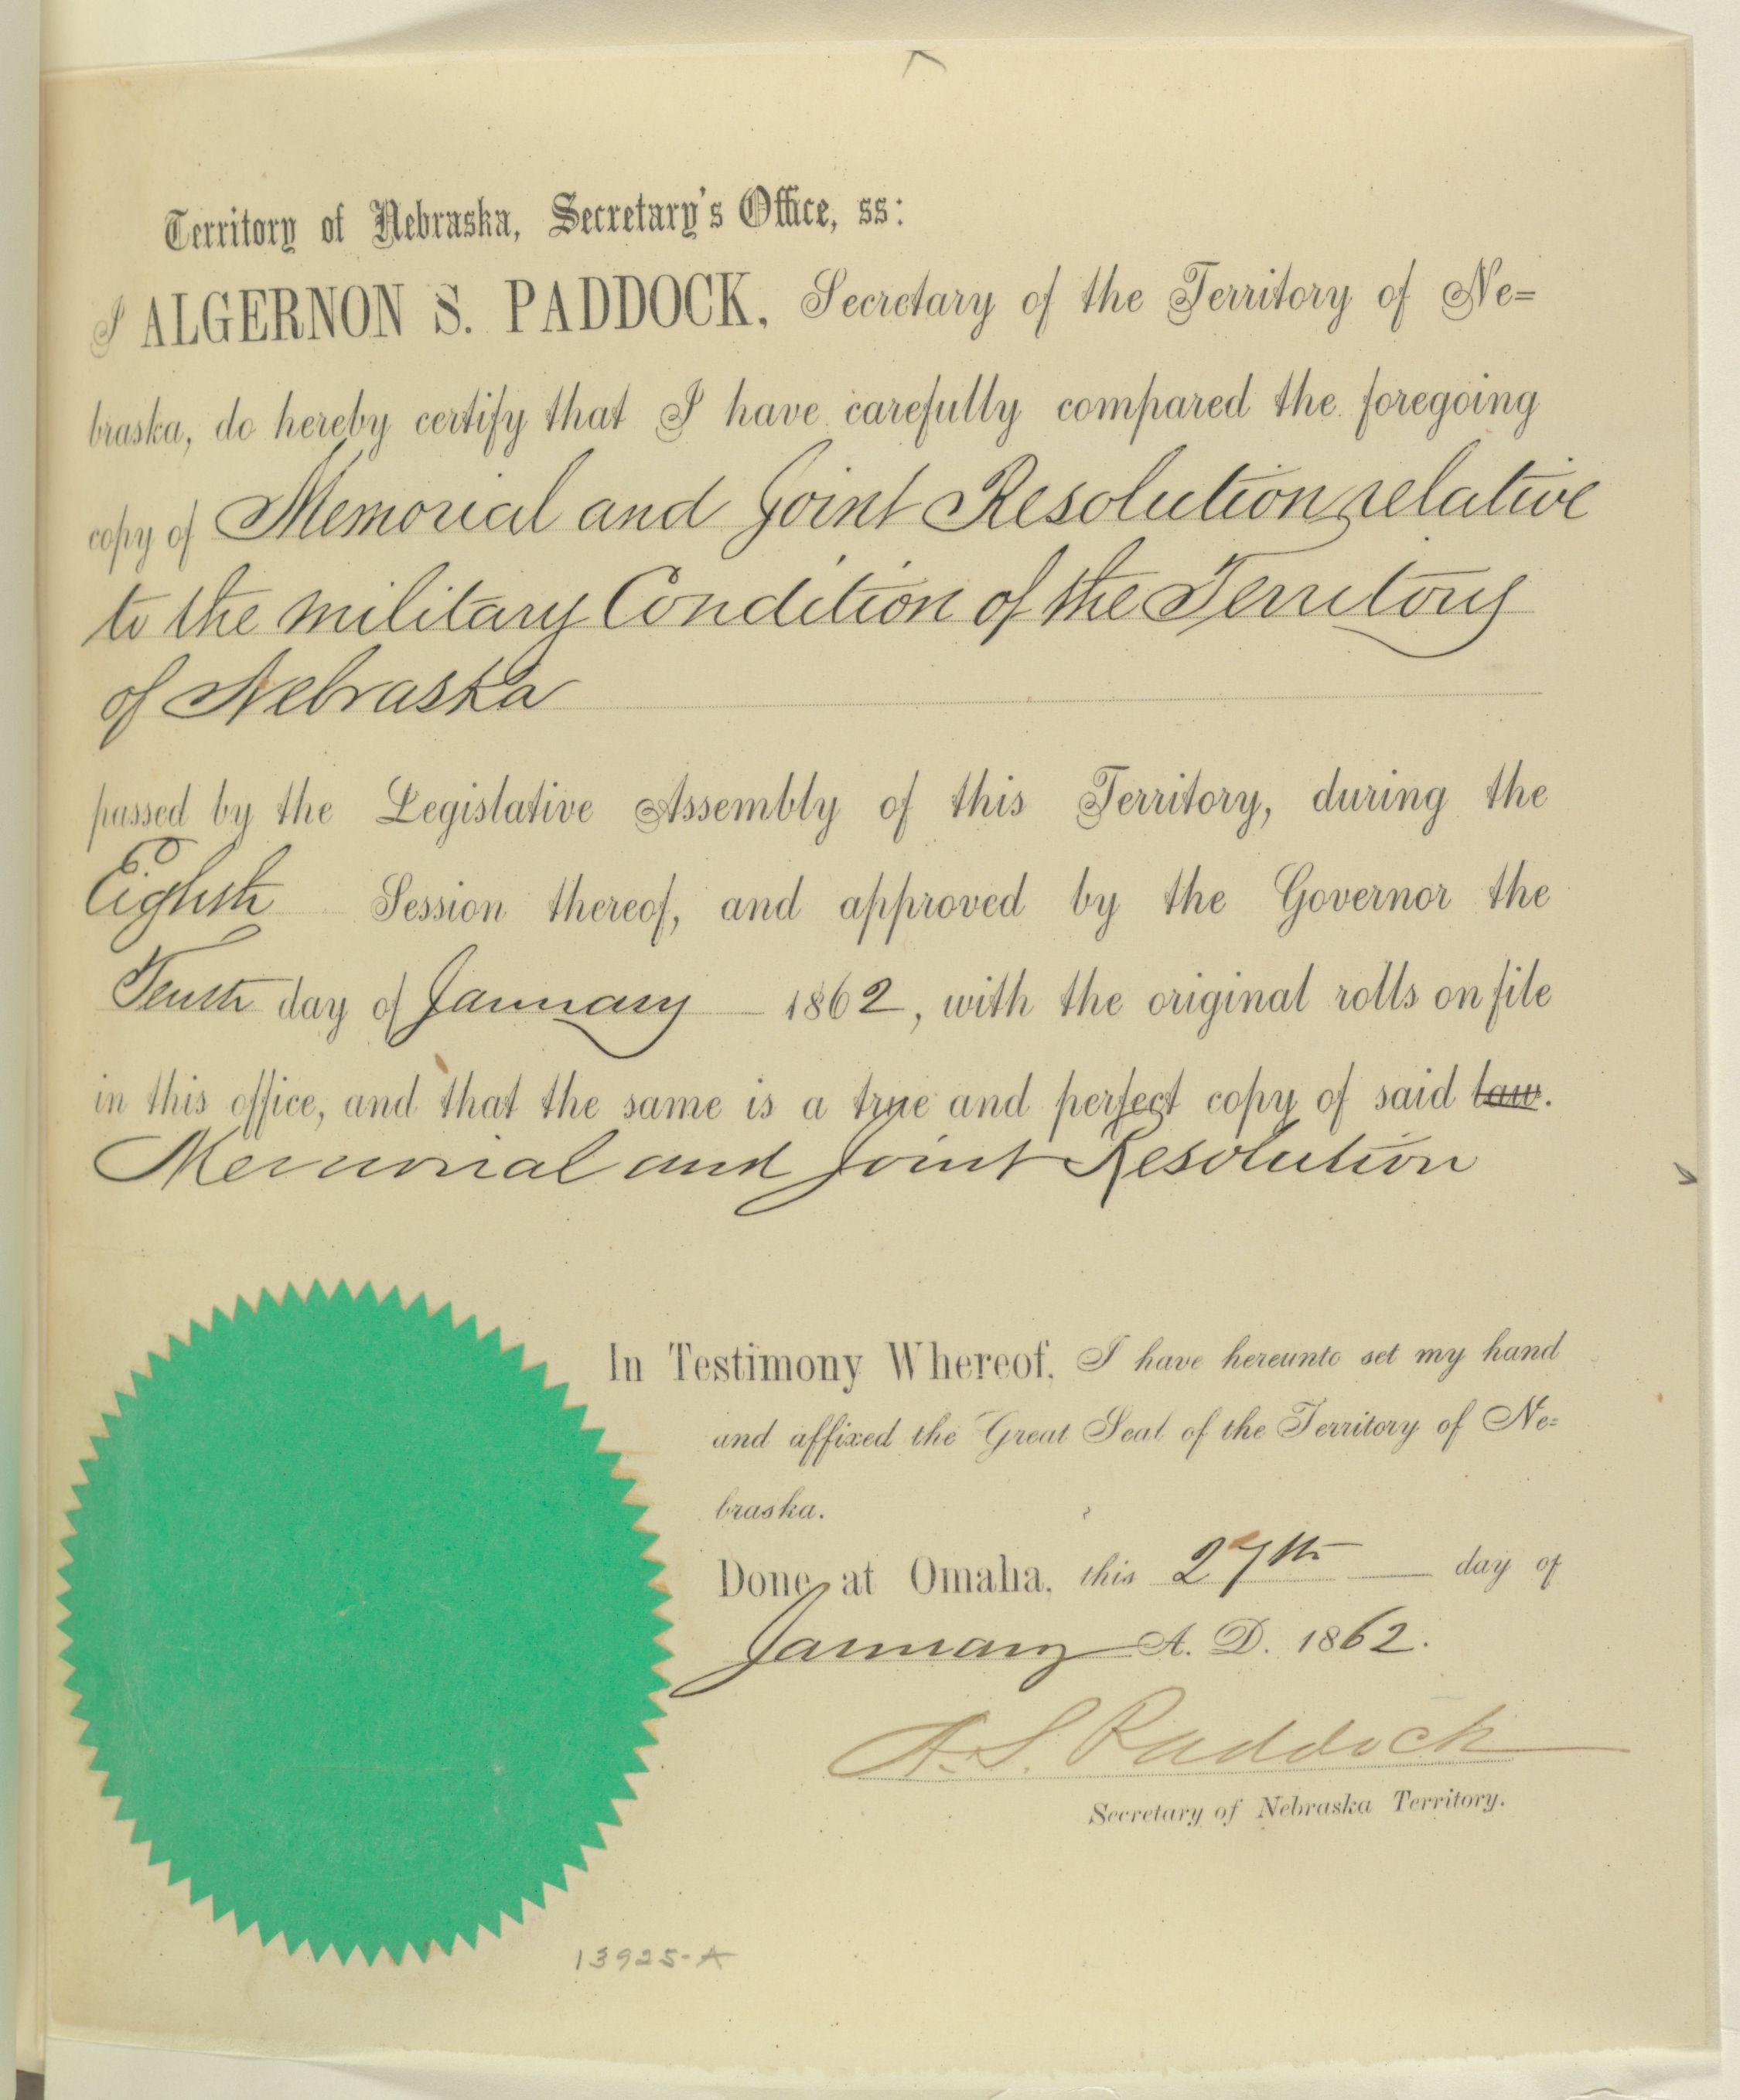 Territory of Nebraska, Secretary's Office, ss:
I ALGERNON S. PADDOCK, Secretary of the Territory of Ne=
braska, do hereby certify that I have carefully compared the foregoing
copy of Memorial and Joint Resolution relative
to the military Condition of the Territory
of Nebraska
passed by the Legislative Assembly of this Territory, during the
Eighth Session thereof, and approved by the Governor the
Tenth day of January 1862, with the original rolls on file
in this office, and that the same is a true and perfect copy of said law.
Memorial and Joint Resolution
In Testimony Whereof, I have hereunto set my hand
and affixed the Great Seal of the Territory of Ne=
braska.
Done at Omaha, this 27th day of
January A. D. 1862.
A. S. Paddock
Secretary of Nebraska Territory.
13925-A